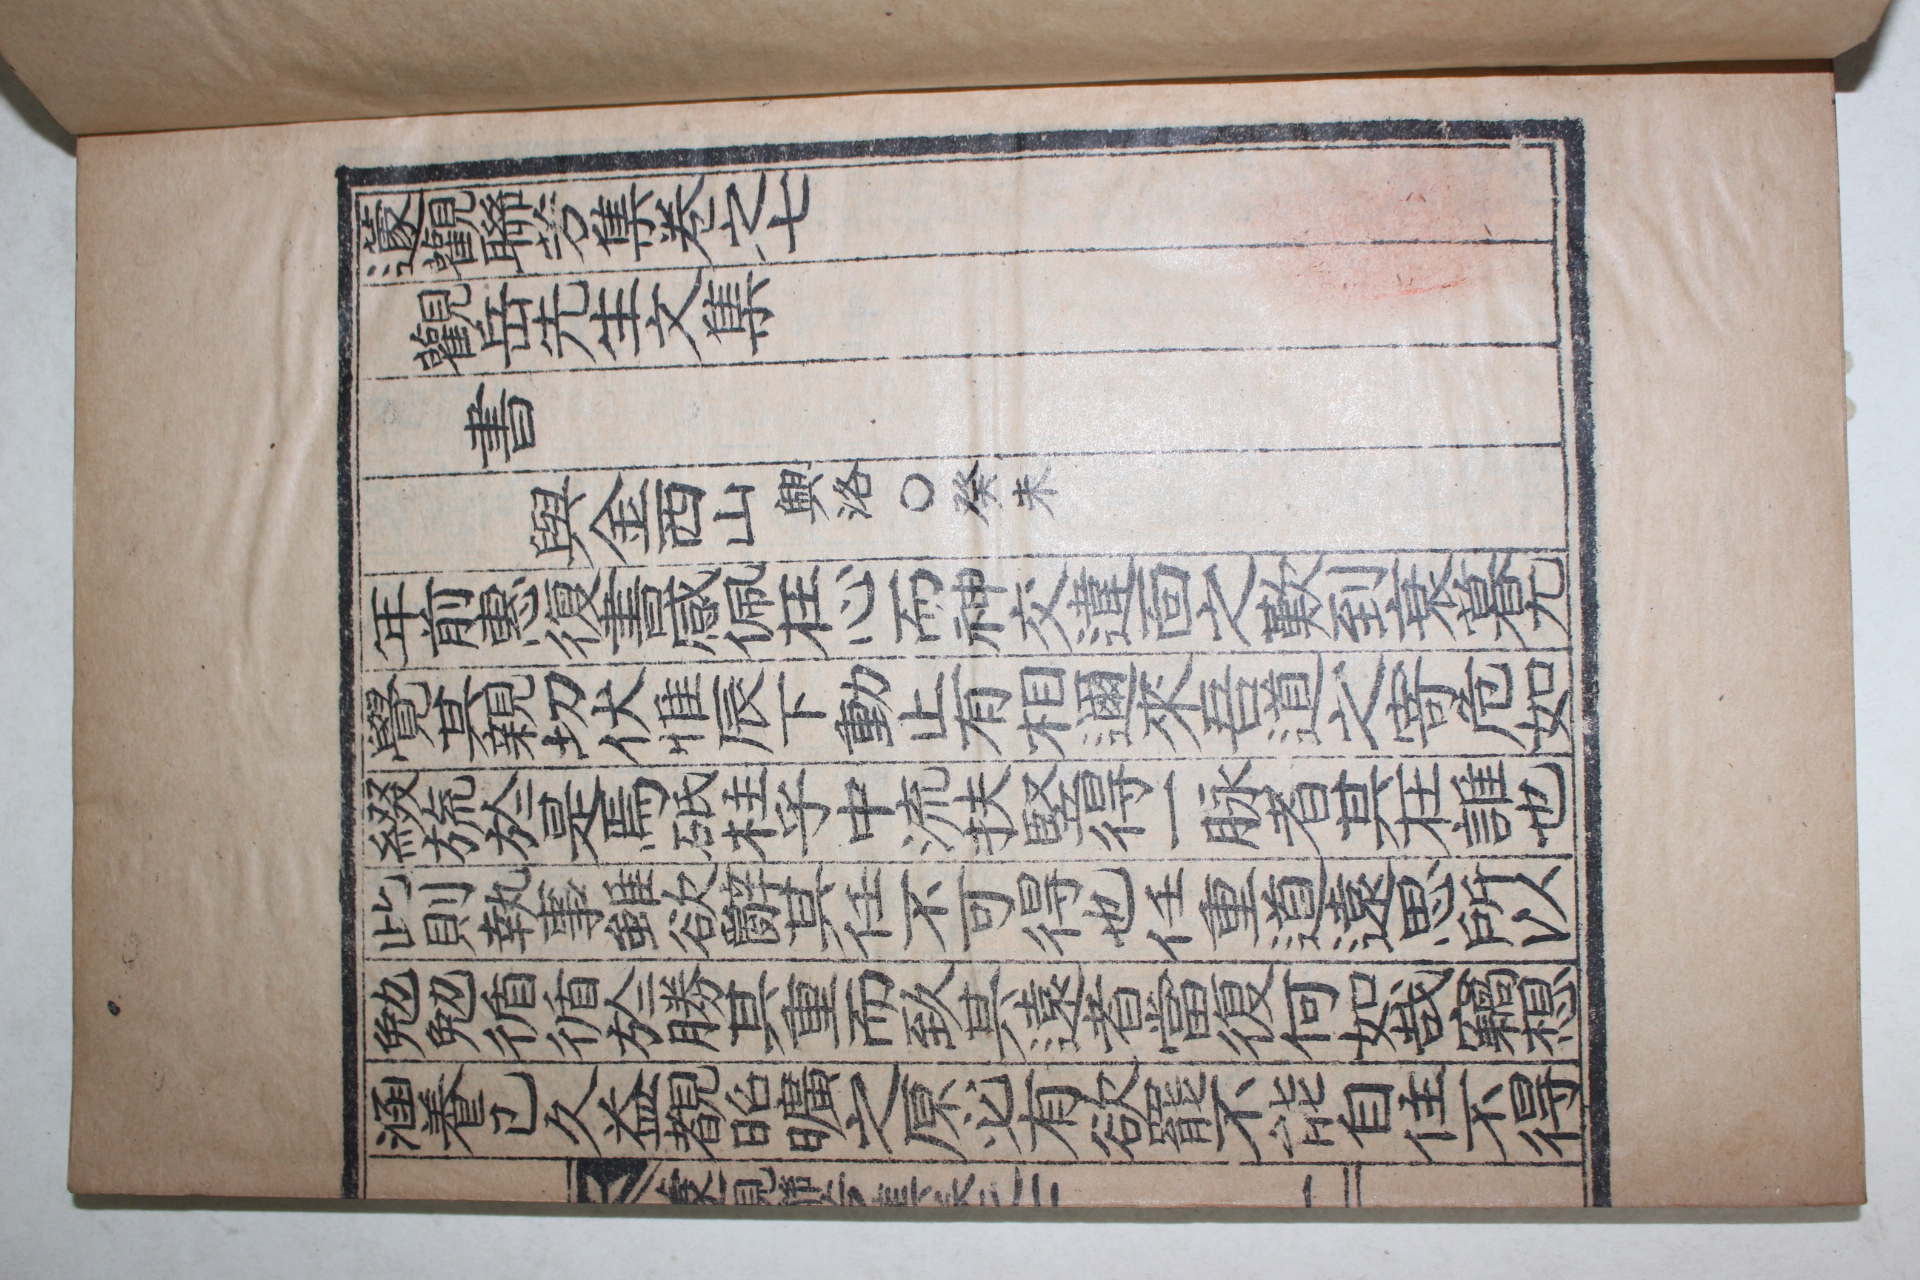 蘧觀聯芳集卷之七
觀岳先生文集
書
與金西山 興洛○癸未
年前惠復書感佩在心而神交違面之歎到衰暮尤
覺其親切伏惟辰下動止有相邇來吾道之寄危如
綴旒於是焉砥柱乎中流扶竪得一脉者其在誰也
此則執事雖欲辭其任不可得也任重道遠思所以
勉勉循循於勝其重而致其遠者當復何如哉竊想
涵養已久益覩昭曠之原必有欲罷不能自住不得